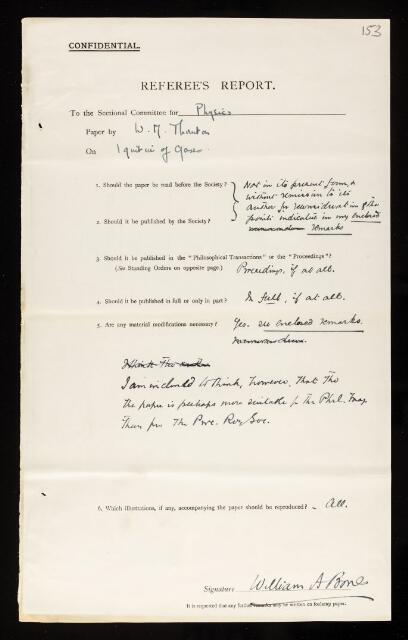 153
CONFIDENTIAL.
REFEREE'S REPORT.
To the Sectional Committee for Physics
Paper by W. M. Thornton
On Ignition of Gases.
1. Should the paper be read before the Society?
Not in its present form, &
without remission to its
author for reconsideration of the
2. Should it be published by the Society?
points indicated in my enclosed
remarks
3. Should it be published in the "Philosophical Transactions" or the "Proceedings"?
(See Standing Orders on opposite page.) Proceedings, if at all.
4. Should it be published in full or only in part? In full, if at all.
5. Are any material modifications necessary? Yes. see enclosed remarks.
I am inclined to think, however, that the
the paper is perhaps more suitable for the Phil. Mag.
than for the Proc. Roy Soc.
6. Which illustrations, if any, accompanying the paper should be reproduced? - All.
Signature William A Bone
It is requested that any further remarks may be written on foolscap paper.